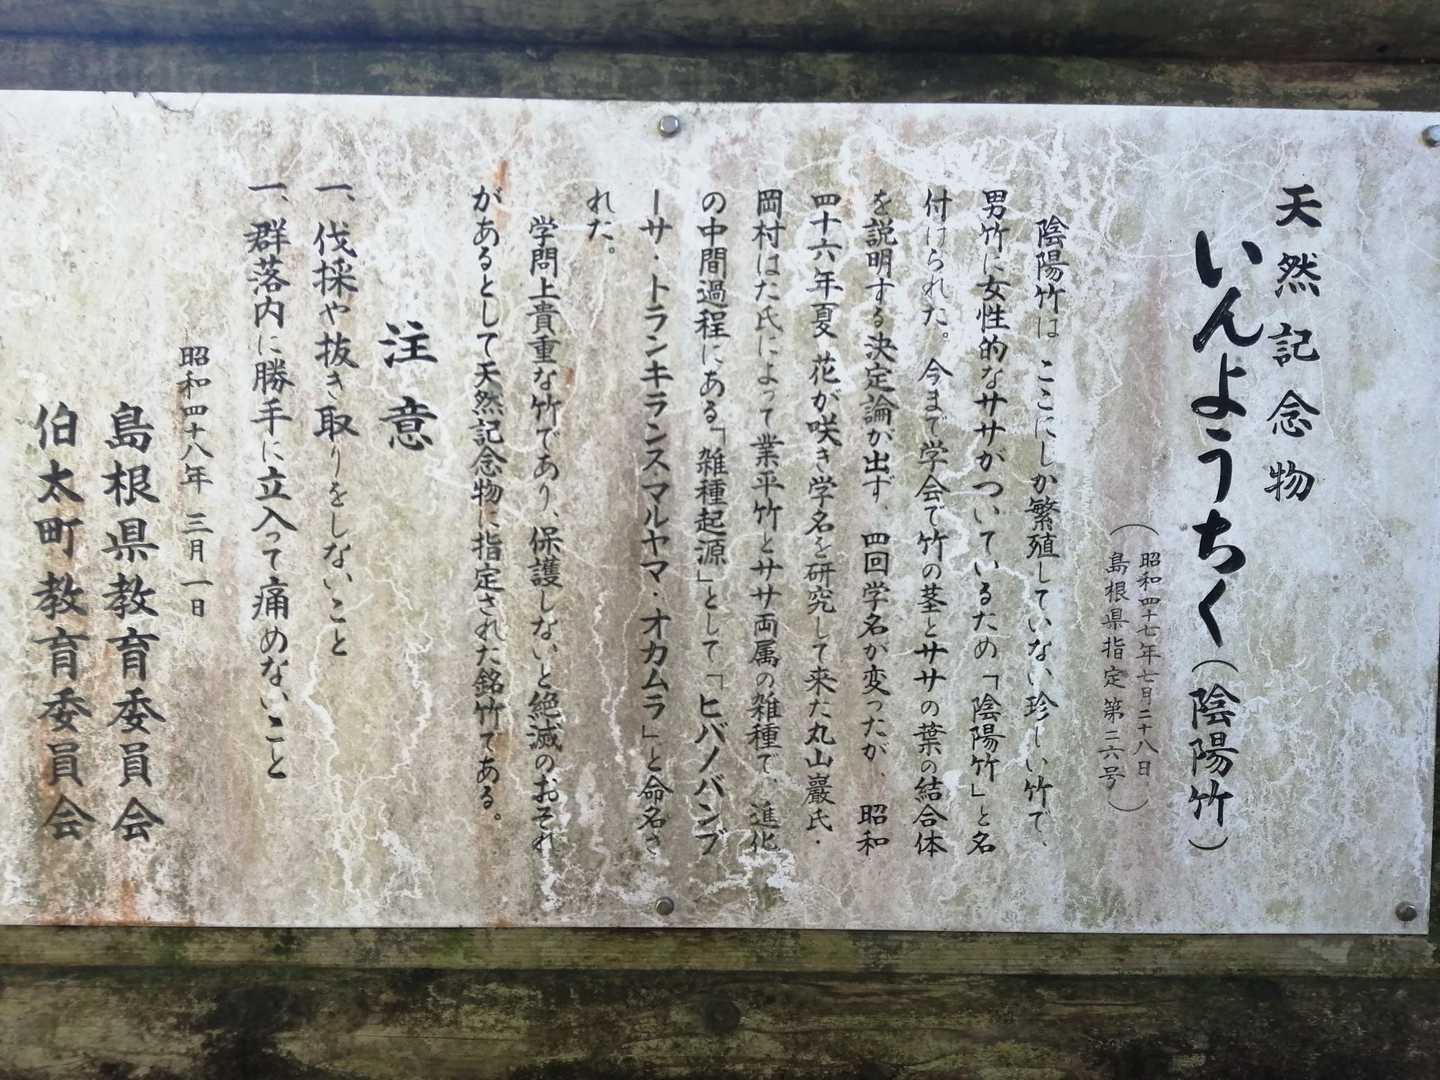 天然記念物
いんようちく(陰陽竹)
(昭和四十七年七月二十八日
島根県指定第二六号)
陰陽竹は ここにしか繁殖していない珍しい竹で、
男竹に女性的なササがついているため「陰陽竹」と名
付けられた。今まで学会で竹の茎とササの葉の結合体
を説明する決定論が出ず、四回学名が変ったが、昭和
四十六年夏 花が咲き学名を研究して来た丸山巖氏・
岡村はた氏によって業平竹とササ両属の雑種で、進化
の中間過程にある「雑種起源」として「ヒバノバンブ
ーサ・トランキランスマルヤマ・オカムラ」と命名さ
れた。
学問上貴重な竹であり、保護しないと絶滅のおそれ
があるとして天然記念物に指定された銘竹である。
注意
一、伐採や抜き取りをしないこと
一、群落内に勝手に立入って痛めないこと
昭和四十八年 三月一日
島根県教育委員会
伯太町教育委員会